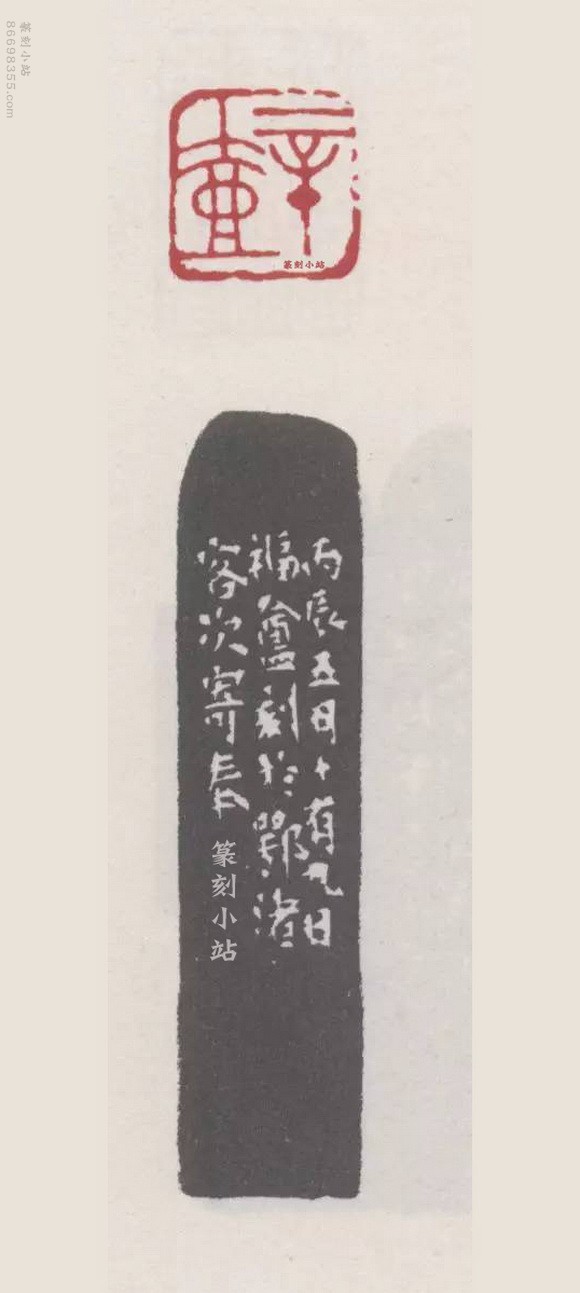 篆刻小站
86698355.com
辛壺
篆刻小站
丙辰五月十有九日
福盦刻於鄂渚
客次寄
篆刻小站